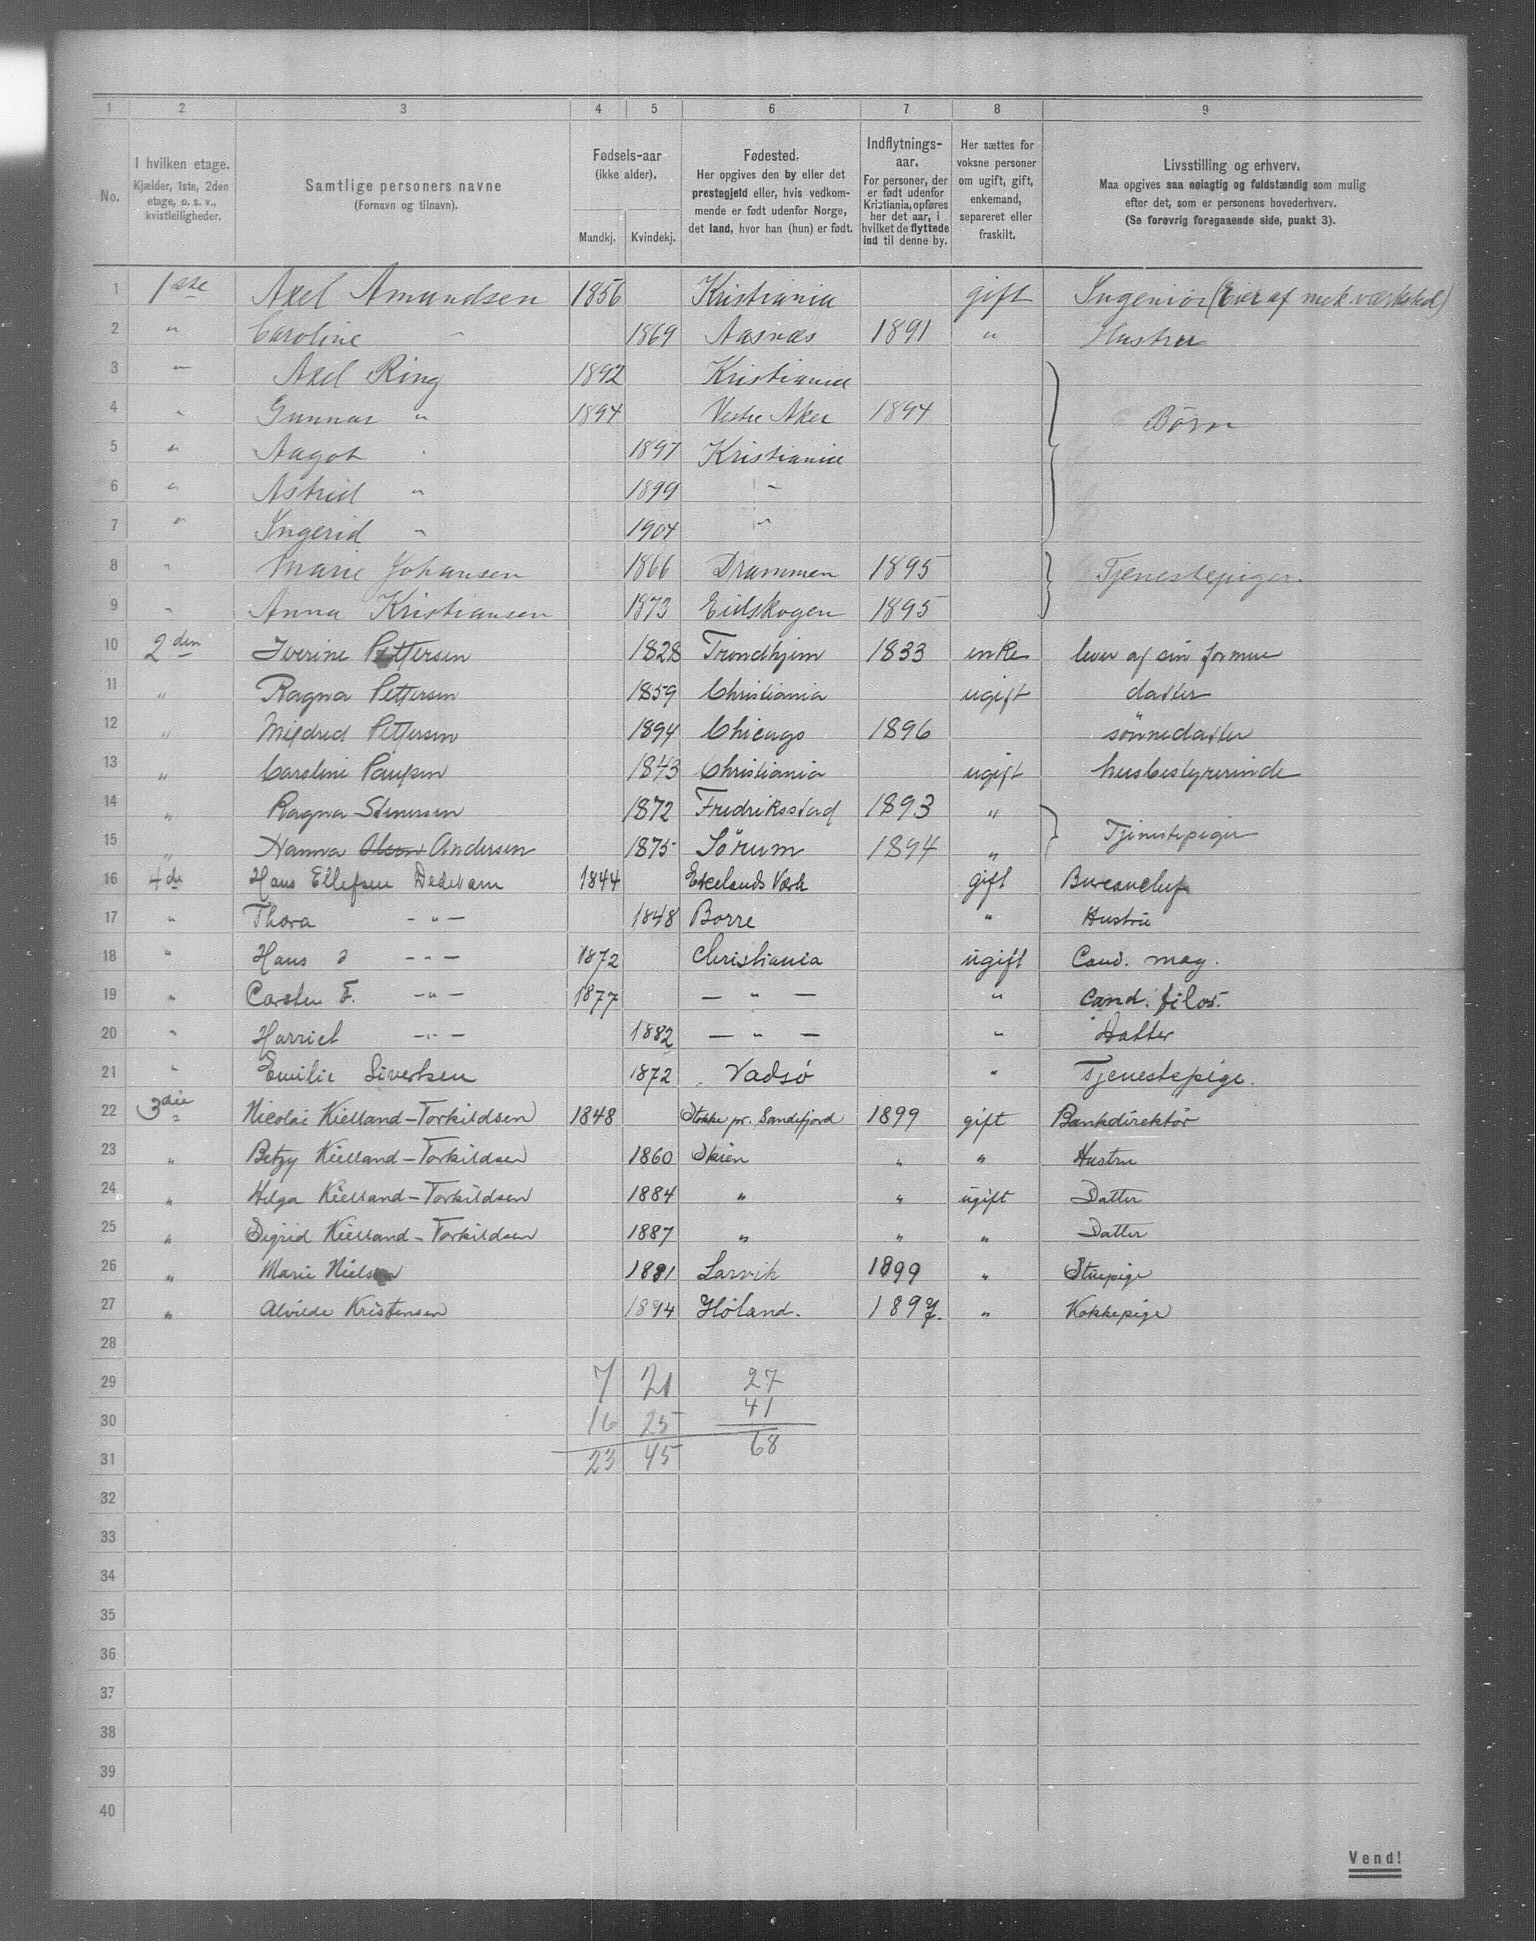 1 2 3 4 5 6 7 8 9
No.
I hvilken etage.
Kjælder, 1ste, 2den
etage, o. s. v.,
kvistleiligheder.
Samtlige personers navne
(Fornavn og tilnavn).
Fødsels-aar
(ikke alder).
Mandkj. Kvindekj.
Fødested.
Her opgives den by eller det
prestegjeld eller, hvis vedkom-
mende er født udenfor Norge,
det land, hvor han (hun) er født.
Indflytnings-
aar.
For personer, der
er født udenfor
Kristiania, opføres
her det aar, i
hvilket de flyttede
ind til denne by.
Her sættes for
voksne personer
om ugift, gift,
enkemand,
separeret eller
fraskilt.
Livsstilling og erhverv.
Maa opgives saa nøiagtig og fuldstændig som mulig
efter det, som er personens hovederhverv.
(Se forøvrig foregaaende side, punkt 3).
1 1ste Axel Amundsen 1856 Kristiania gift Ingeniør (Eier af mek værksted)
2 " Caroline " 1869 Aasnæs 1891 " Hustru
3 " Axel Ring 1892 Kristiania
4 " Gunnar " 1894 Vestre Aker 1894 Børn
5 " Aagot " 1897 Kristiania
6 " Astrid " 1899 "
7 " Ingerid " 1904 "
8 " Marie Johansen 1866 Drammen 1895 Tjenestepiger.
9 " Anna Kristiansen 1873 Eidskogen 1895
10 2den Iverine Pettersen 1828 Trondhjem 1833 enke lever af sin formue
11 " Ragna Pettersen 1859 Christiania ugift datter
12 " Mildred Pettersen 1894 Chicago 1896 sønnedatter
13 " Caroline Paulsen 1843 Christiania ugift husbestyrerinde
14 " Ragna Stenersen 1872 Fredriksstad 1893 " Tjenestepiger
15 " Hanna Olsen Andersen 1875 Sørum 1894 "
16 4de Hans Ellefsen Dedekam 1844 Egelands Værk gift Bureauchef
17 " Thora - " - 1848 Borre " Hustru
18 " Hans - " - 1872 Christiania ugift Cand. mag.
19 " Carsten F. - " - 1877 - " - " Cand. filos.
20 " Harriet - " - 1882 - " - " Datter
21 " Emilie Sivertsen 1872 Vadsø " Tjenestepige.
22 3die Nicolai Kielland-Torkildsen 1848 Stokke pr. Sandefjord 1899 gift Bankdirektør
23 " Betzy Kielland-Torkildsen 1860 Skien " " Hustru
24 " Helga Kielland-Torkildsen 1884 " " ugift Datter
25 " Sigrid Kielland-Torkildsen 1887 " " " Datter
26 " Marie Nielsen 1881 Larvik 1899 " Stuepige
27 " Alvilde Kristensen 1874 Høland. 1897. " Kokkepige
28
29 7 21 27
30 16 25 41
31 23 45 68
32
33
34
35
36
37
38
39
40
Vend!